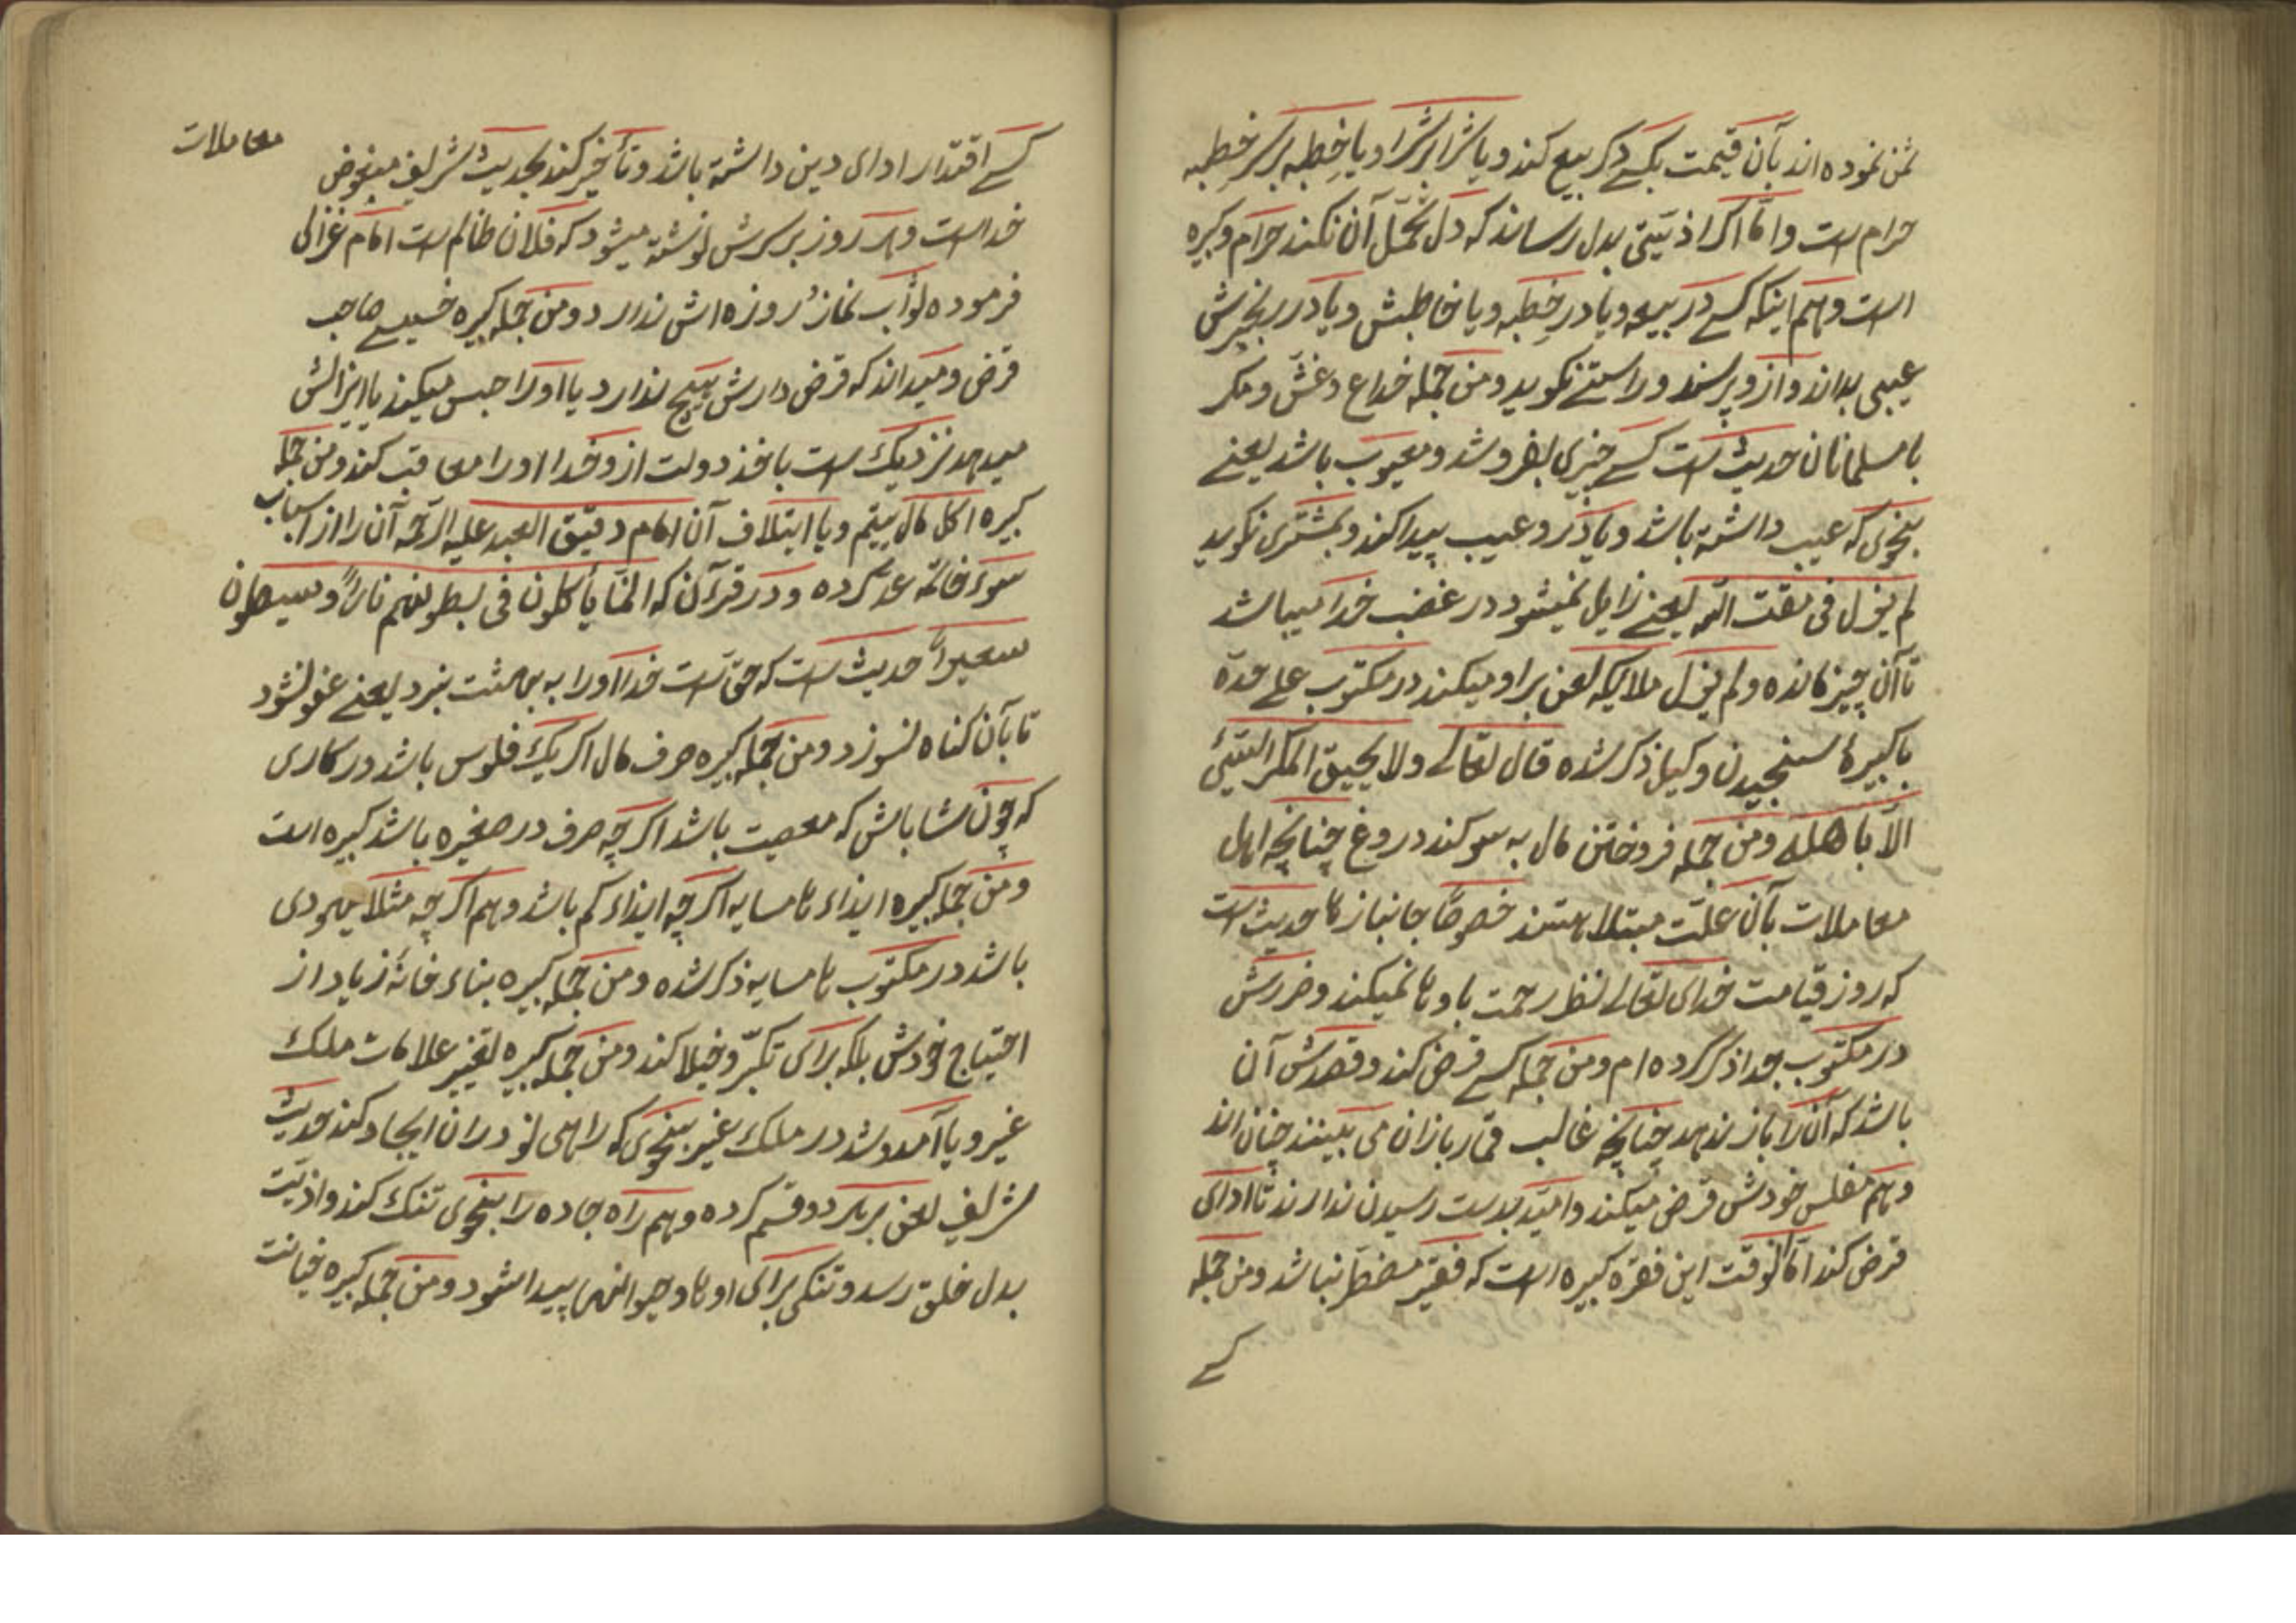 ثمن نموده اند بآن قیمت بکسے دکر بیع کند ویا شرا بر شرا ویا خِطبه بر سر خطبه
حرام است واما اکر اذیتی بدل رساند که دل تحمّل آن نکند حرام وکبیره
است وهم اینکه کسے در بیعه ویا در خِطبه ویا خاطبش ویا در
عیبی بداند وازو پرسند وراستے نکوید ومن جمله خداع وغشّ ومکر
با مسلمانان حدیث است کسے چیزی بفروشد ومعیوب باشد یعنے
بنحوی که عیب داشته باشد ویا درو عیب پیدا کند وبمشتری نکوید
لم یزل فی مقت الله یعنے زایل نمیشود در غضب خدا میباشد
تا آن چیز مانده ولم یزل ملایکه لعن براو میکند در مکتوب علے حدّه
با کبیرۀ سنجیدن وکیل ذکر شده قال تعالے ولا یحیق المکر السّیّئ
الّا باهله ومن جمله فروختن مال به سوکند دروغ چنانچه اهل
معاملات بآن علّت مبتلا هستند خصوصًا جانبازها حدیث است
که روز قیامت خدای تعالے نظر رحمت باوها نمیکند وضررش
در مکتوب جدا ذکر کرده ام ومن جمله کسے قرض کند وقصدش آن
باشد که آن را باز ندهد چنانچه غالب قمار بازان می بینند چنان اند
وهم مفلس خودش قرض میکند وامید بدست رسیدن ندارند تا ادای
قرض کند امّا انوقت این فقره کبیره است که فقیر مضطر نباشد ومن جمله
کسے
معاملات
کسے اقتدار ادای دین داشته باشد وتأخیر کند بحدیث شریف مبغوض
خداست وهر روز بر سرش نوشته میشود که فلان ظالم است امام غزالی
فرموده ثواب نماز روزه اش ندارد ومن جمله کبیره صاحب
قرض ومیداند که قرض دارش هیچ ندارد یا اورا حبس میکند یا ایزالش
میدهد نزدیک است باخذ دولت ازو وخدا اورا معاقب کند ومن جمله
کبیره اکل مال یتیم ویا ابتلاف آن امام دقیق العبد علیه الرّحمه آن را از اسباب
سوء خاتمه عدّ کرده ودر قرءآن که انّما یأکلون فی بطونهم نارًا وسیصلون
سعیرًا حدیث است که حق است خدا اورا به بهشت نبرد یعنے عفو نشود
تا بآن کناه نسوزد ومن جمله کبیره صرف مال اکر یک فلوس باشد در کاری
که چون شاباش که معصیت باشد اکرچه صرف در صغیره باشد کبیره است
ومن جمله کبیره ایذاء هامسایه اکرچه ایذاء کم باشد وهم اکرچه مثلا یهودی
باشد در مکتوب هامسایه ذکر شده ومن جمله کبیره بناء خانۀ زیاد از
احتیاج خودش بلکه برای تکبّر وخیلا کند ومن جمله کبیره تغییر علامات ملک
غیر ویا آمدوشد در ملک غیر بنحوی که راهی نو دران ایجاد کند حدیث
شریف لعن بر هر دو قسم کرده وهم راه جاده را بنحوی تنک کند واذیّت
بدل خلق رسد وتنکی برای اوها وحیوانهیا پیدا شود ومن جمله کبیره خیانت